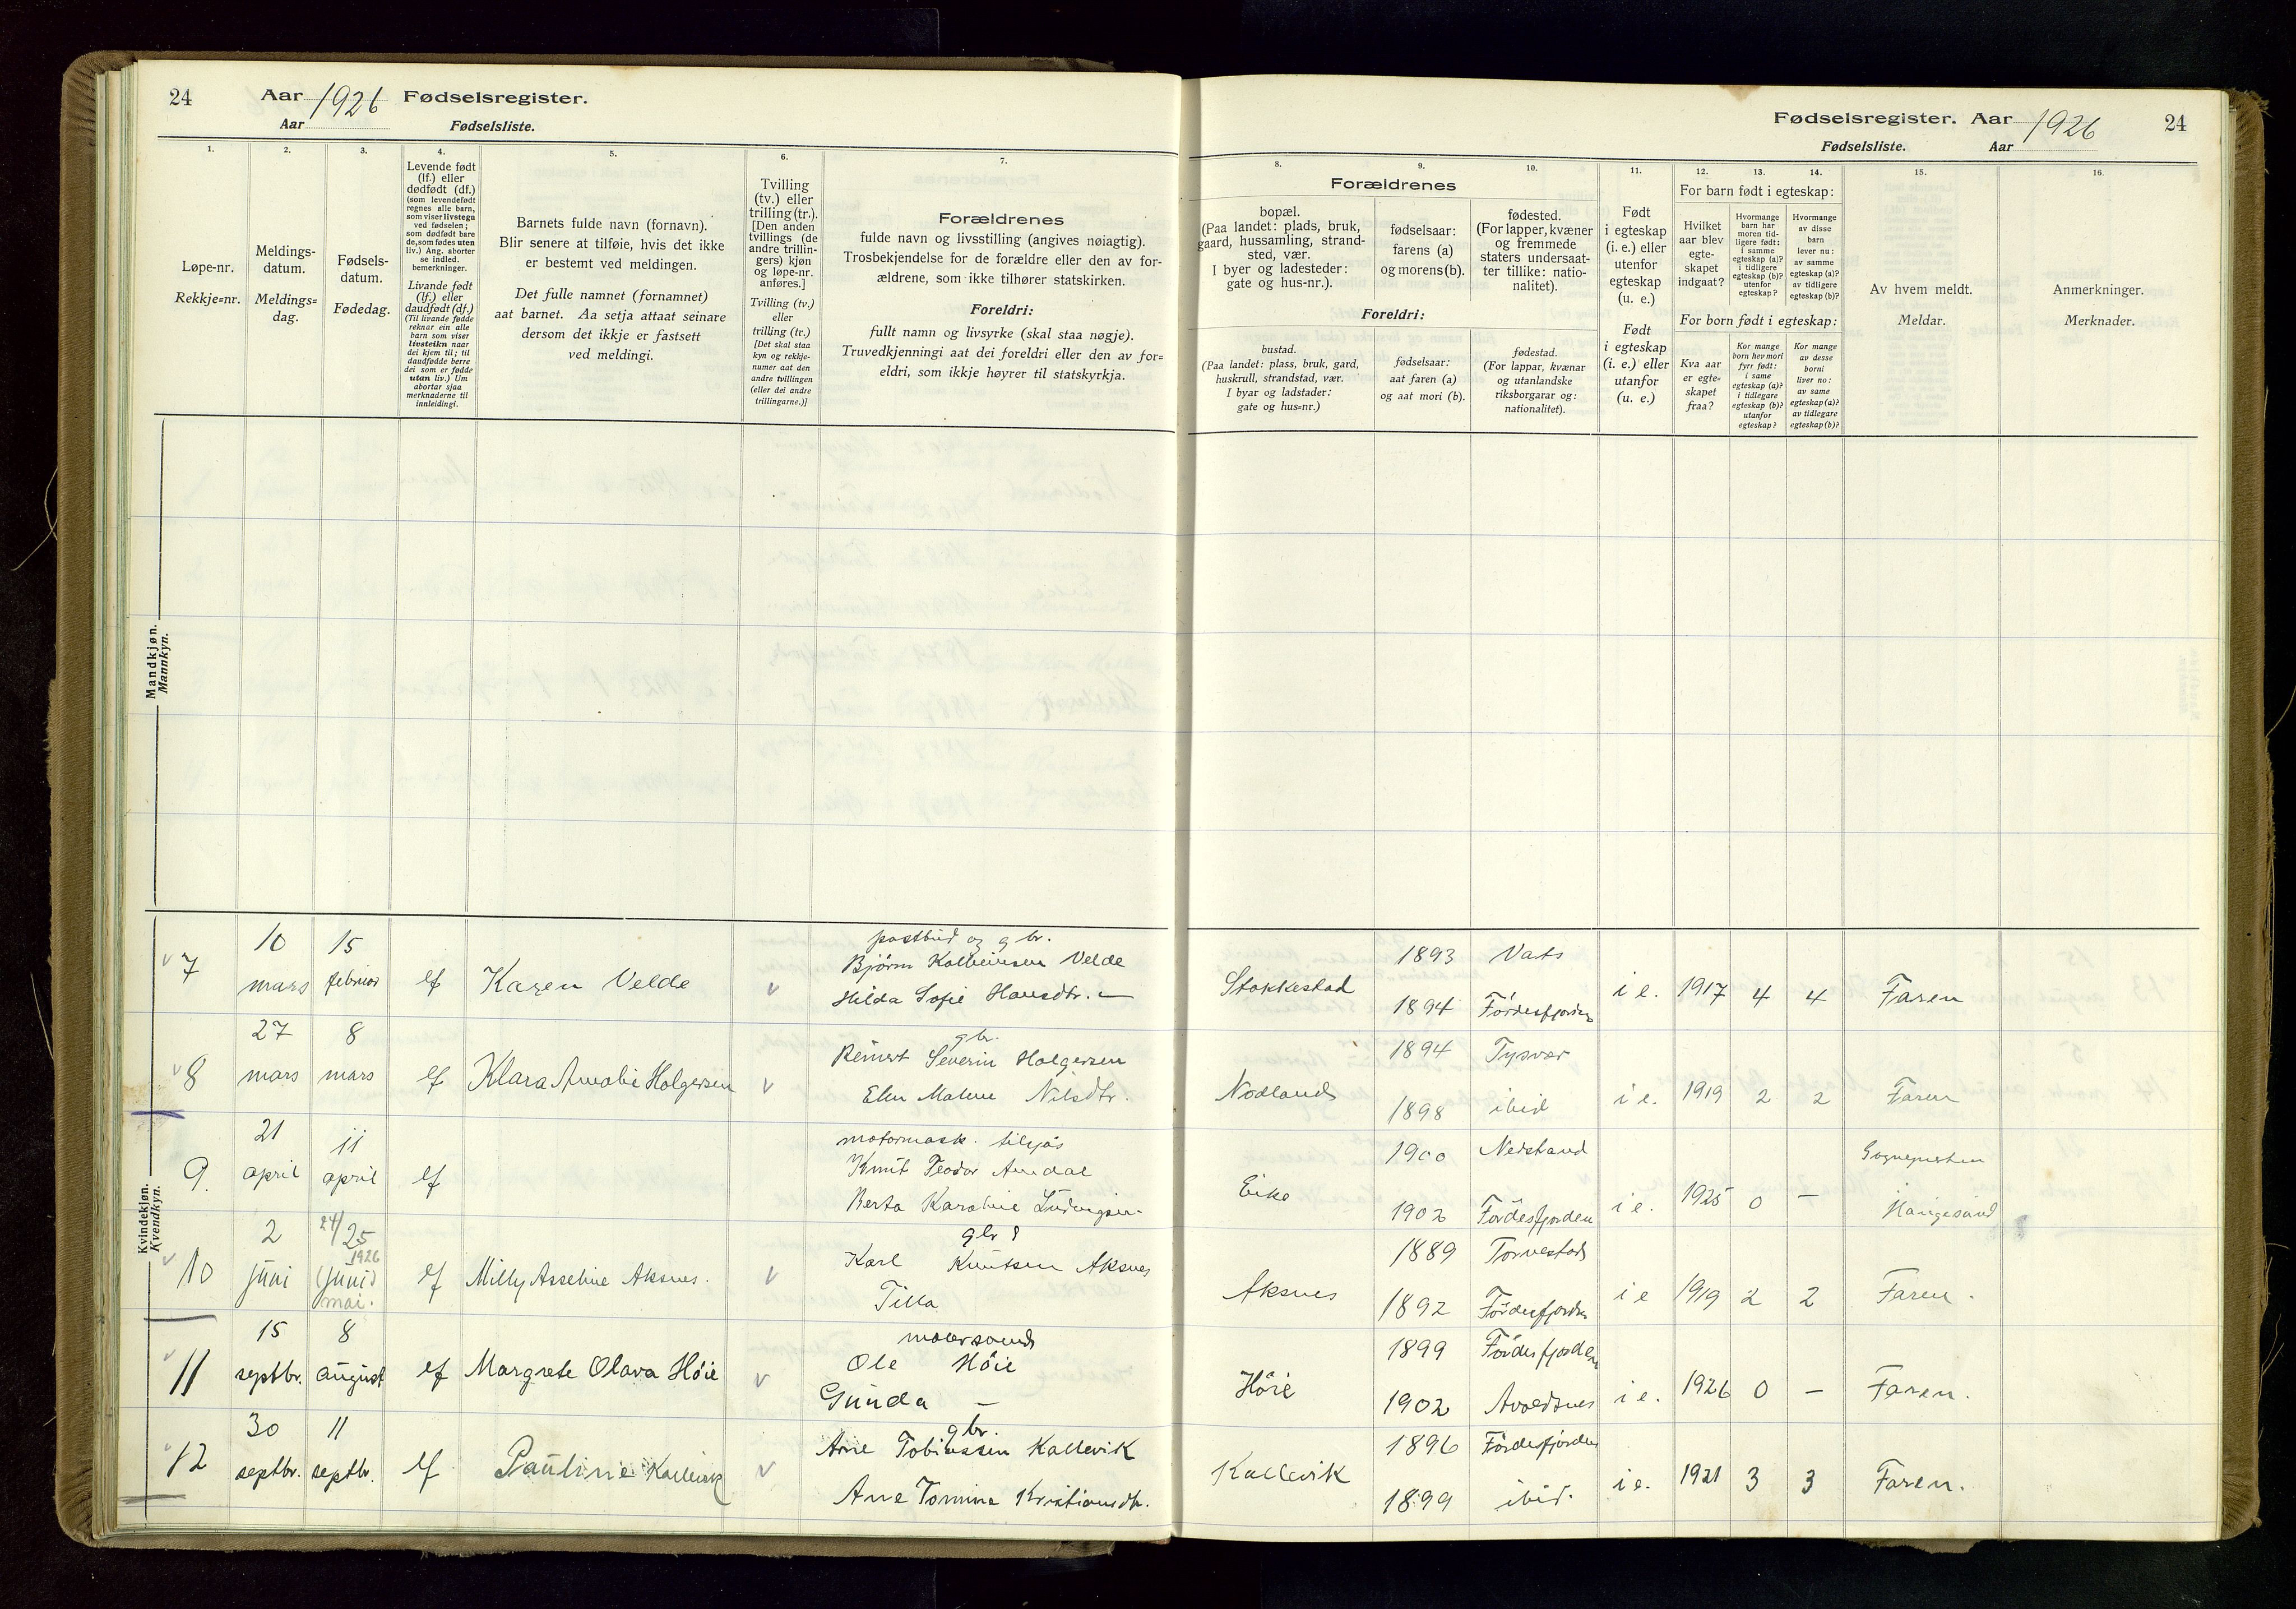 24
Aar 1926 Fødselsregister.
Aar Fødselsliste.
1.
Løpe-nr.
Rekkje=nr.
2.
Meldings-
datum.
Meldings=
dag.
3.
Fødsels-
datum.
Fødedag.
4.
Levende født
(lf.) eller
dødfødt (df.)
(som levendefødt
regnes alle barn,
som viser livstegn
ved fødselen;
som dødfødt bare
de, som fødes uten
liv.) Ang. aborter
se indled.
bemerkninger.
Livande født
(lf.) eller
daudfødt (df.)
(Til livande fødde
reknar ein alle
barn som viser
livsteikn naar
dei kjem til; til
daudfødde berre
dei som er fødde
utan liv.) Um
abortar sjaa
merknaderne til
innleidingi.
5.
Barnets fulde navn (fornavn).
Blir senere at tilføie, hvis det ikke
er bestemt ved meldingen.
Det fulle namnet (fornamnet)
aat barnet. Aa setja attaat seinare
dersom det ikkje er fastsett
ved meldingi.
6.
Tvilling
(tv.) eller
trilling (tr.).
[Den anden
tvillings (de
andre trillin-
gers) kjøn
og løpe-nr.
anføres.]
Tvilling (tv.)
eller
trilling (tr.)
[Det skal staa
kyn og rekkje-
numer aat den
andre tvillingen
(eller dei andre
trillingarne.)]
7.
Forældrenes
fulde navn og livsstilling (angives nøiagtig).
Trosbekjendelse for de forældre eller den av for-
ældrene, som ikke tilhører statskirken.
Foreldri:
fullt namn og livsyrke (skal staa nøgje).
Truvedkjenningi aat dei foreldri eller den av for=
eldri, som ikkje høyrer til statskyrkja.
Mandkjøn.
Mannkyn.
Kvindekjøn.
Kvendkyn.
Fødselsregister. Aar 1926
Fødselsliste. Aar
24
8. 9. 10.
Forældrenes
bopæl.
(Paa landet: plads, bruk,
gaard, hussamling, strand-
sted, vær.
I byer og ladesteder:
gate og hus-nr.).
fødselsaar:
farens (a)
og morens (b).
fødested.
(For lapper, kvæner
og fremmede
staters undersaat-
ter tillike: natio-
nalitet).
Foreldri:
bustad.
(Paa landet: plass, bruk, gard,
huskrull, strandstad, vær.
I byar og ladstader:
gate og hus=nr.)
fødselsaar:
aat faren (a)
og aat mori (b).
fødestad.
(For lappar, kvænar
og utanlandske
riksborgarar og:
nationalitet).
11.
Født
i egteskap
(i. e.) eller
utenfor
egteskap
(u. e.)
Født
i egteskap
(i. e.) eller
utanfor
(u. e.)
12. 13. 14.
For barn født i egteskap:
Hvilket
aar blev
egte-
skapet
indgaat?
Hvormange
barn har
moren tid-
ligere født:
i samme
egteskap (a)?
i tidligere
egteskap (b)?
utenfor
egteskap?
Hvormange
av disse
barn
lever nu:
av samme
egteskap (a)?
av tidligere
egteskap (b)?
For born født i egteskap:
Kva aar
er egte=
skapet
fraa?
Kor mange
born hev mori
fyrr født:
i same
egteskap (a)?
i tidlegare
egteskap (b)?
utanfor
egteskap?
Kor mange
av desse
borni
liver no:
av same
egteskap (a)?
av tidlegare
egteskap (b)?
15.
Av hvem meldt.
Meldar.
16.
Anmerkninger.
Merknader.
7 10 mars 15 februar lf Karen Velde v
postbud og g br.
Bjørn Kolbeinsen Velde
Hilda Sofie Hansdtr. —
Stakkestad 1893 Vats
1894 Førdesfjorden i e. 1917 4 4 Faren
8 27 mars 8 mars lf Klara Amalie Holgersen v
gbr.
Reinert Severin Holgersen
Elen Malene Nilsdtr.
Nodland 1894 Tysvær
1898 ibid i e. 1919 2 2 Faren
9. 21 april 11 april lf
motormask. tilsjøs
Knut Teodor Amdal
Berta Karoline Ludvigsen
Eike 1900 Nedstrand
1902 Førdesfjorden i e. 1925 0 —
Sognepresten
Haugesund
10 2 juni 24/25 1926 (juni) mai. lf Milly Asseline Aksnes. v
gbr
Karl Knutsen Aksnes
Tilla
Aksnes 1889 Torvestad
1892 Førdesfjorden i e 1919 2 2 Faren.
11 15 septbr. 8 august lf Margrete Olava Høie v
møbelsnedk
Ole Høie
Gunda —
Høie 1899 Førdesfjorden
1902 Avaldsnes i e. 1926 0 — Faren.
12 30 septbr. 11 septbr. lf Pauline Kallevik v
gbr.
Arne Tobiassen Kallevik
Ane Tomine Kristiansdtr.
Kallevik 1896 Førdesfjorden
1899 ibid. i e. 1921 3 3 Faren.